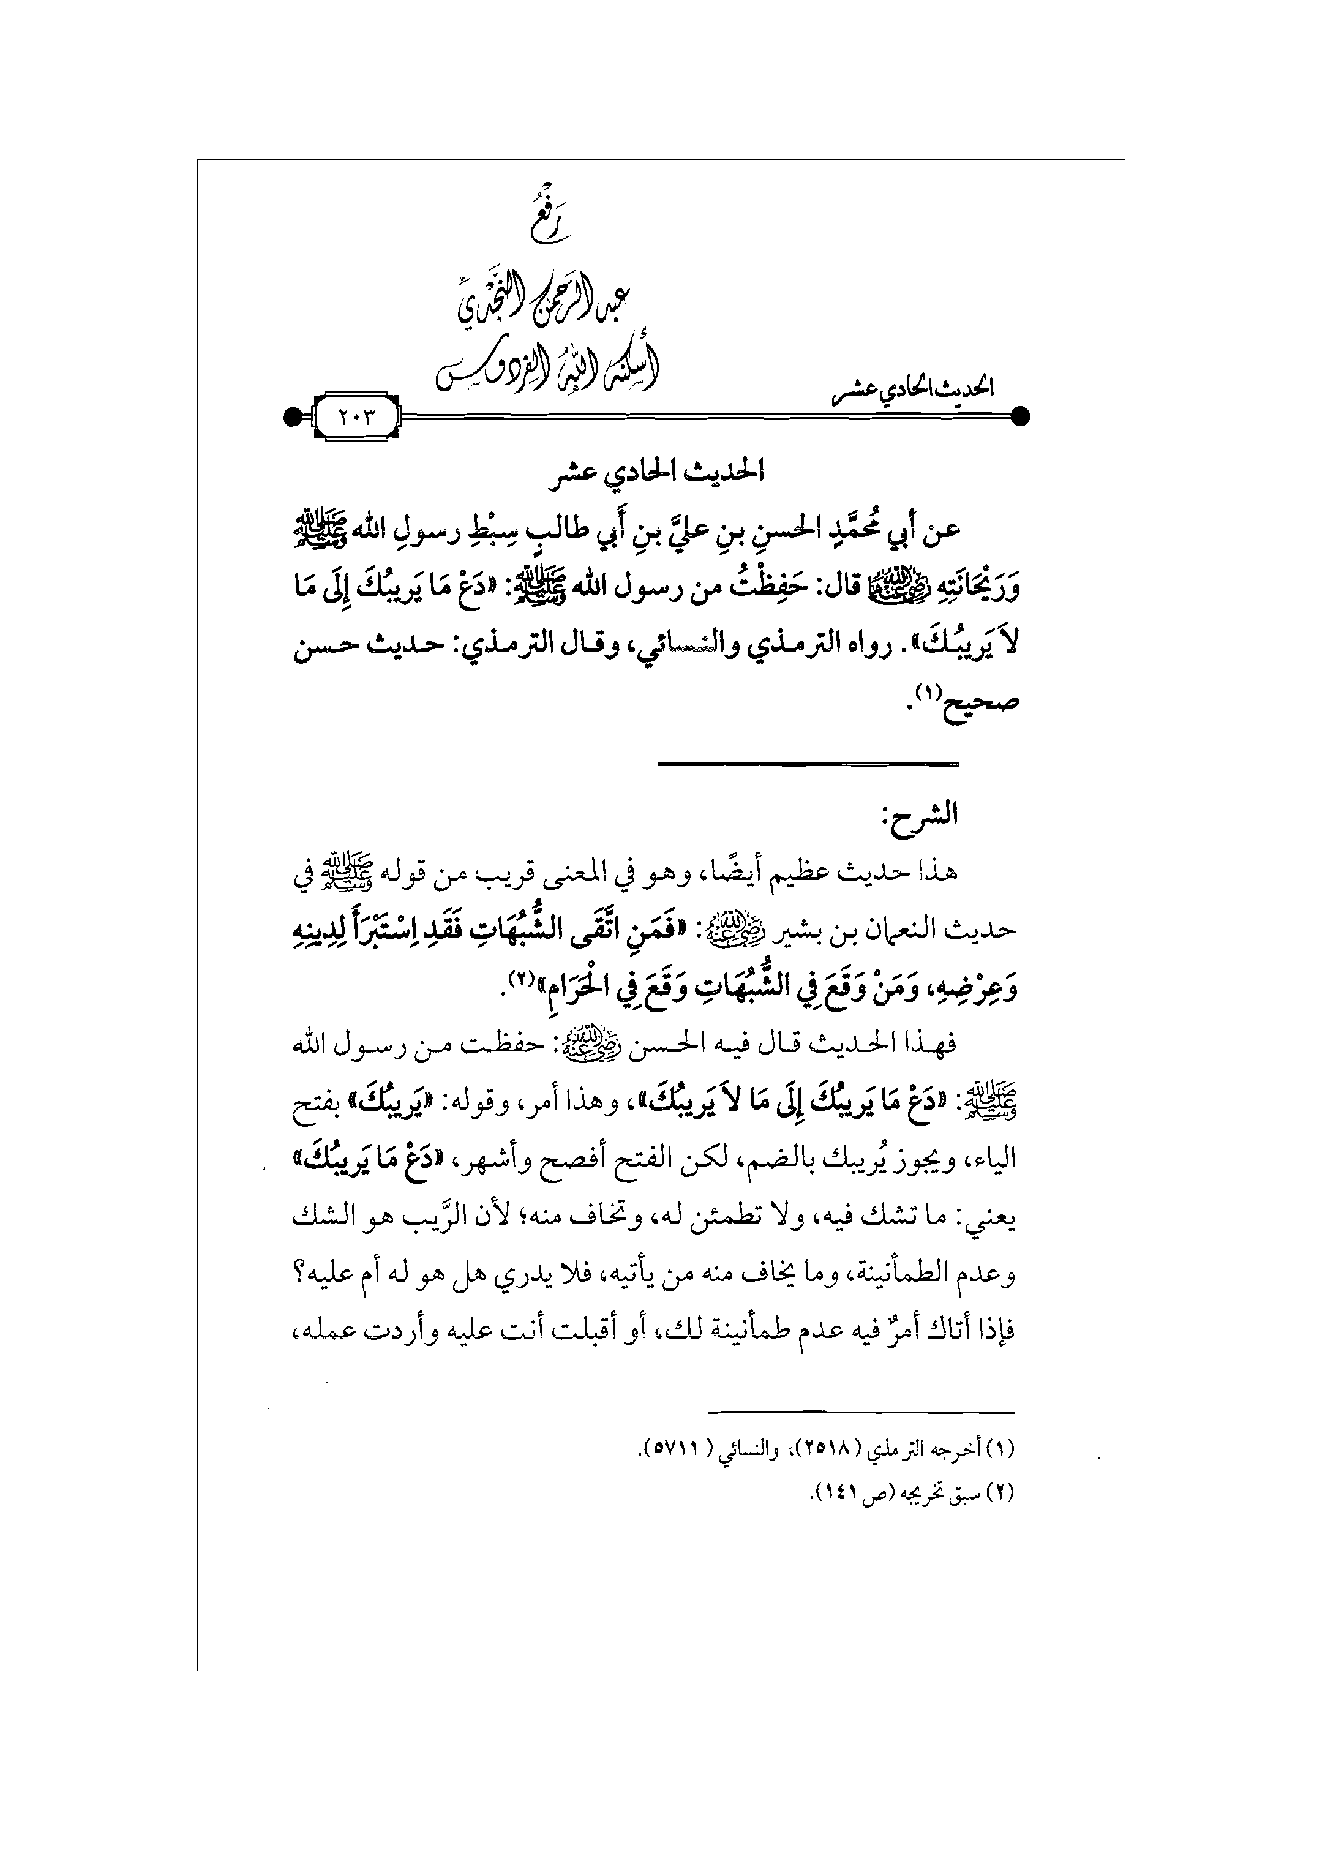 رَفْعُ
عبد الرحمن النجدي
أسكنه الله الفردوس
الحديث الحادي عشر
٢٠٣
الحديث الحادي عشر
عن أبي مُحَمَّدٍ الحسنِ بنِ عليَّ بنِ أَبي طالبٍ سِبْطِ رسولِ الله ﷺ
وَرَيْحَانَتِهِ رضي الله عنهما قال: حَفِظْتُ من رسول الله ﷺ: «دَعْ مَا يَرِيبُكَ إِلَى مَا
لاَ يَرِيبُكَ». رواه الترمذي والنسائي، وقال الترمذي: حديث حسن
صحيح(١).
الشرح:
هذا حديث عظيم أيضًا، وهو في المعنى قريب من قوله ﷺ في
حديث النعمان بن بشير رضي الله عنه: «فَمَنِ اتَّقَى الشُّبُهَاتِ فَقَدِ اِسْتَبْرَأَ لِدِينِهِ
وَعِرْضِهِ، وَمَنْ وَقَعَ فِي الشُّبُهَاتِ وَقَعَ فِي الْحَرَامِ»(٢).
فهذا الحديث قال فيه الحسن رضي الله عنه: حفظت من رسول الله
ﷺ: «دَعْ مَا يَرِيبُكَ إِلَى مَا لاَ يَرِيبُكَ»، وهذا أمر، وقوله: «يَرِيبُكَ» بفتح
الياء، ويجوز يُريبك بالضم، لكن الفتح أفصح وأشهر، «دَعْ مَا يَرِيبُكَ»
يعني: ما تشك فيه، ولا تطمئن له، وتخاف منه؛ لأن الرَّيب هو الشك
وعدم الطمأنينة، وما يخاف منه من يأتيه، فلا يدري هل هو له أم عليه؟
فإذا أتاك أمرٌ فيه عدم طمأنينة لك، أو أقبلت أنت عليه وأردت عمله،
(١) أخرجه الترمذي (٢٥١٨)، والنسائي (٥٧١١).
(٢) سبق تخريجه (ص ١٤١).